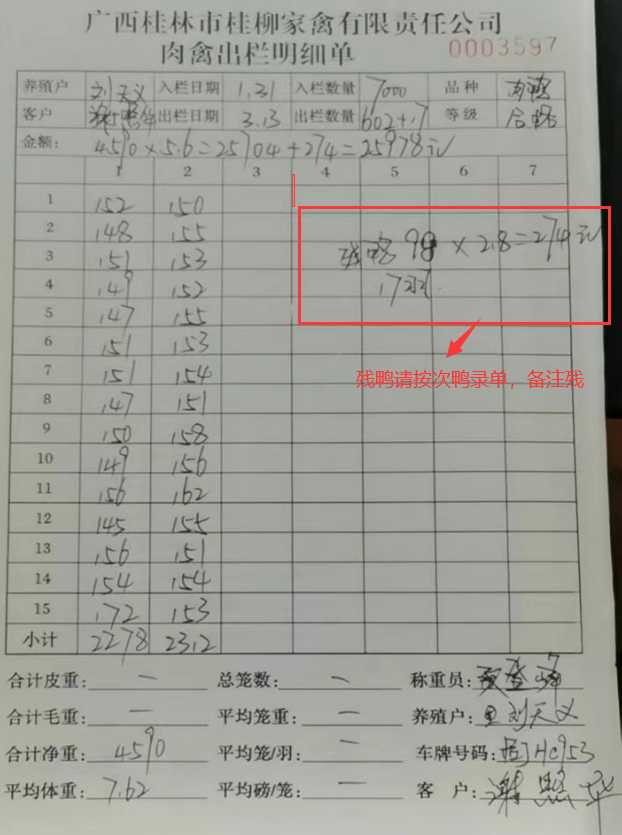 广西桂林市桂柳家禽有限责任公司
肉禽出栏明细单 0003597
养殖户 刘天义 入栏日期 1.31 入栏数量 7000 品种
客户 出栏日期 3.13 出栏数量 602+17 等级 合格
金额: 4590×5.6=25704+274=25978元
1 2 3 4 5 6 7
1 152 150
2 148 155
残鸭 98 × 2.8=274元
3 151 153
4 149 152 17羽
5 147 155
6 151 153
7 151 154
残鸭请按次鸭录单,备注残
8 147 151
9 150 158
10 149 156
11 156 162
12 145 155
13 156 151
14 154 154
15 172 153
小计 2278 2312
合计皮重: — 总笼数: — 称重员:
合计毛重: — 平均笼重: — 养殖户: 刘天义
合计净重: 4590 平均笼/羽: — 车牌号码: HC953
平均体重: 7.62 平均磅/笼: — 客 户: